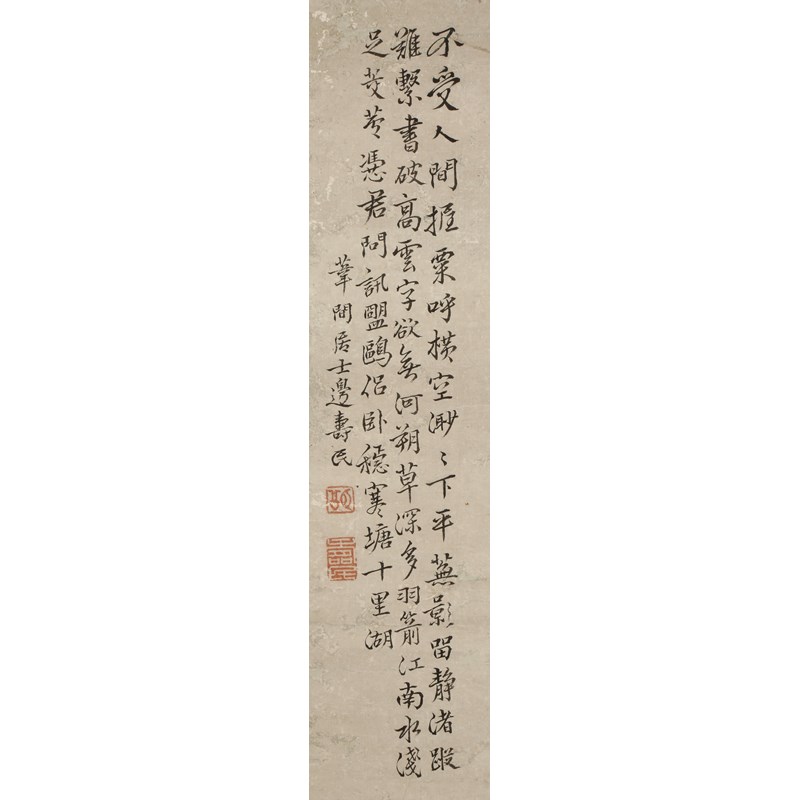 不受人間握粟呼橫空渺〻下平蕪影留靜渚蹤
難繫書破高雲字欲無河朔草深多羽箭江南水淺
足芰芩憑君問訊盟鷗侣卧穩寒塘十里湖
葦間居士邊壽民
壽民